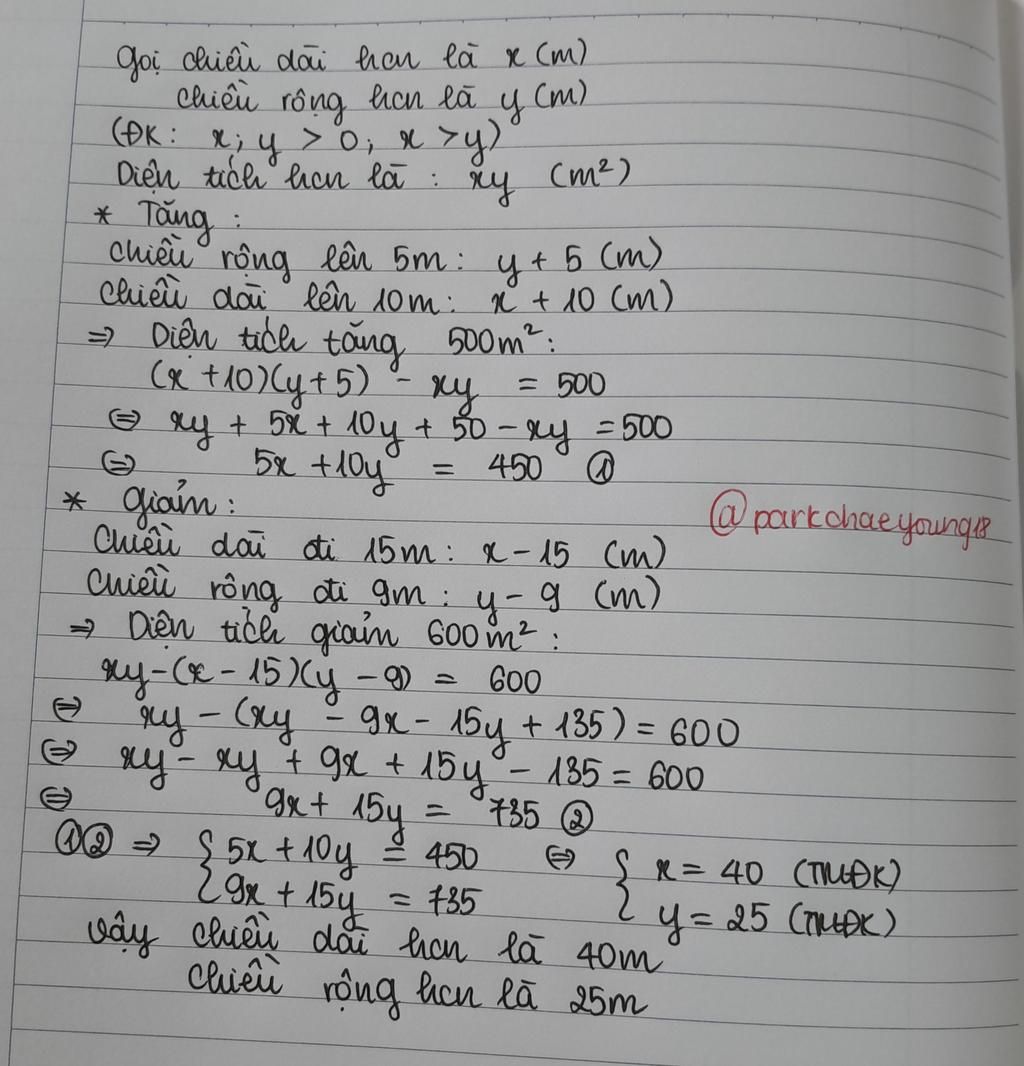 Gọi chiều dài hcn là x (m)
chiều rộng hcn là y (m)
(ĐK: x; y > 0; x > y)
Diện tích hcn là : xy (m²)
* Tăng :
Chiều rộng lên 5m: y + 5 (m)
Chiều dài lên 10m: x + 10 (m)
⇒ Diện tích tăng 500m²:
(x + 10)(y + 5) - xy = 500
⇔ xy + 5x + 10y + 50 - xy = 500
⇔ 5x + 10y = 450 ①
* Giảm :
Chiều dài đi 15m: x - 15 (m)
Chiều rộng đi 9m : y - 9 (m)
⇒ Diện tích giảm 600m² :
xy - (x - 15)(y - 9) = 600
⇔ xy - (xy - 9x - 15y + 135) = 600
⇔ xy - xy + 9x + 15y - 135 = 600
⇔ 9x + 15y = 735 ②
①② ⇒ { 5x + 10y = 450 ⇔ { x = 40 (TMĐK)
9x + 15y = 735 y = 25 (TMĐK)
Vậy chiều dài hcn là 40m
chiều rộng hcn là 25m
@parkchaeyoung18